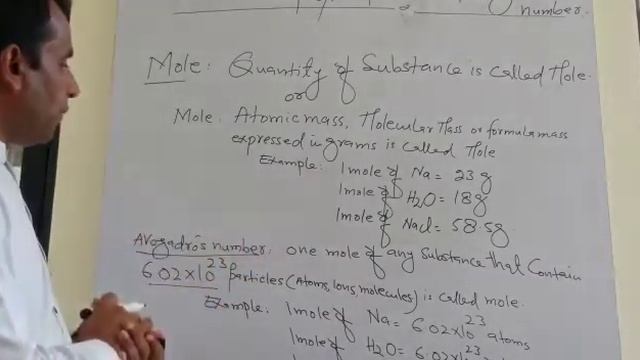 number.
Mole: Quantity of Substance is Called Mole.
or
Mole: Atomic mass, Molecular Mass or formula mass
expressed in grams is called Mole
Example: 1 mole of Na = 23 g
1 mole of H2O = 18g
1 mole of NaCl = 58.5g
Avogadro's number: one mole of any Substance that Contain
6.02×10²³ Particles (Atoms, Ions, molecules) is called mole.
Example: 1 mole of Na = 6.02×10²³ atoms
1 mole of H2O = 6.02×10²³